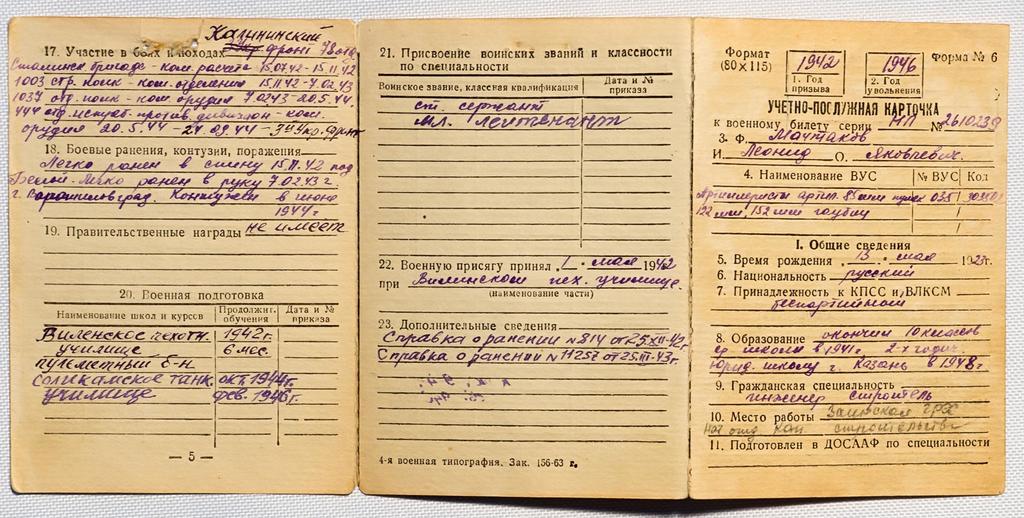 17. Участие в боях и походах Калининский
фронт 78 отд.
Сталинск. бригада - ком. расчета - 15.07.42 - 15.11.42
1003 стр. полк - ком. отделения 15.11.42 - 7.02.43
1037 стр. полк - ком. орудия 7.02.43 - 20.5.44.
444 отд. истреб. против. дивизион - ком.
орудия 20.5.44 - 24.09.44 - 3й Укр. фронт
18. Боевые ранения, контузии, поражения
Легко ранен в спину 15.11.42 под
Белой. Легко ранен в руку 7.02.43 г.
г. Ворошиловград. Контужен в июне
1944 г
19. Правительственные награды не имеет
20. Военная подготовка
Наименование школ и курсов
Продолжит. обучения
Дата и № приказа
Виленское пехотн. 1942 г.
училище 6 мес.
пулеметный б-н
Соликамское танк. окт. 1944 г.
училище фев. 1946 г.
— 5 —
21. Присвоение воинских званий и классности
по специальности
Воинское звание, классная квалификация
Дата и № приказа
ст. сержант
мл. лейтенант
22. Военную присягу принял „1" мая 1942
при Виленском пех. училище
(наименование части)
23. Дополнительные сведения
Справка о ранении № 814 от 25.XII-42 г.
Справка о ранении № 11257 от 25.III-43 г.
4-я военная типография. Зак. 156-63 г.
Формат
(80×115)
1942
1. Год
призыва
1946
2. Год
увольнения
Форма № 6
УЧЕТНО-ПОСЛУЖНАЯ КАРТОЧКА
к военному билету серии НП № 2610239
3. Ф. Мачтаков
И. Леонид О. Яковлевич.
4. Наименование ВУС № ВУС Код
Артиллеристы артил. 85 мм пушек 035
122 мм, 152 мм гаубиц
I. Общие сведения
5. Время рождения „13" мая 1923 г.
6. Национальность русский
7. Принадлежность к КПСС и ВЛКСМ
беспартийный
8. Образование окончил 10 классов
ср. школы в 1941 г. 2-х годич.
юрид. школу г. Казань в 1948 г
9. Гражданская специальность
инженер строитель
10. Место работы Заинская ГРЭС
Нач. отд. кап. строительства
11. Подготовлен в ДОСААФ по специальности